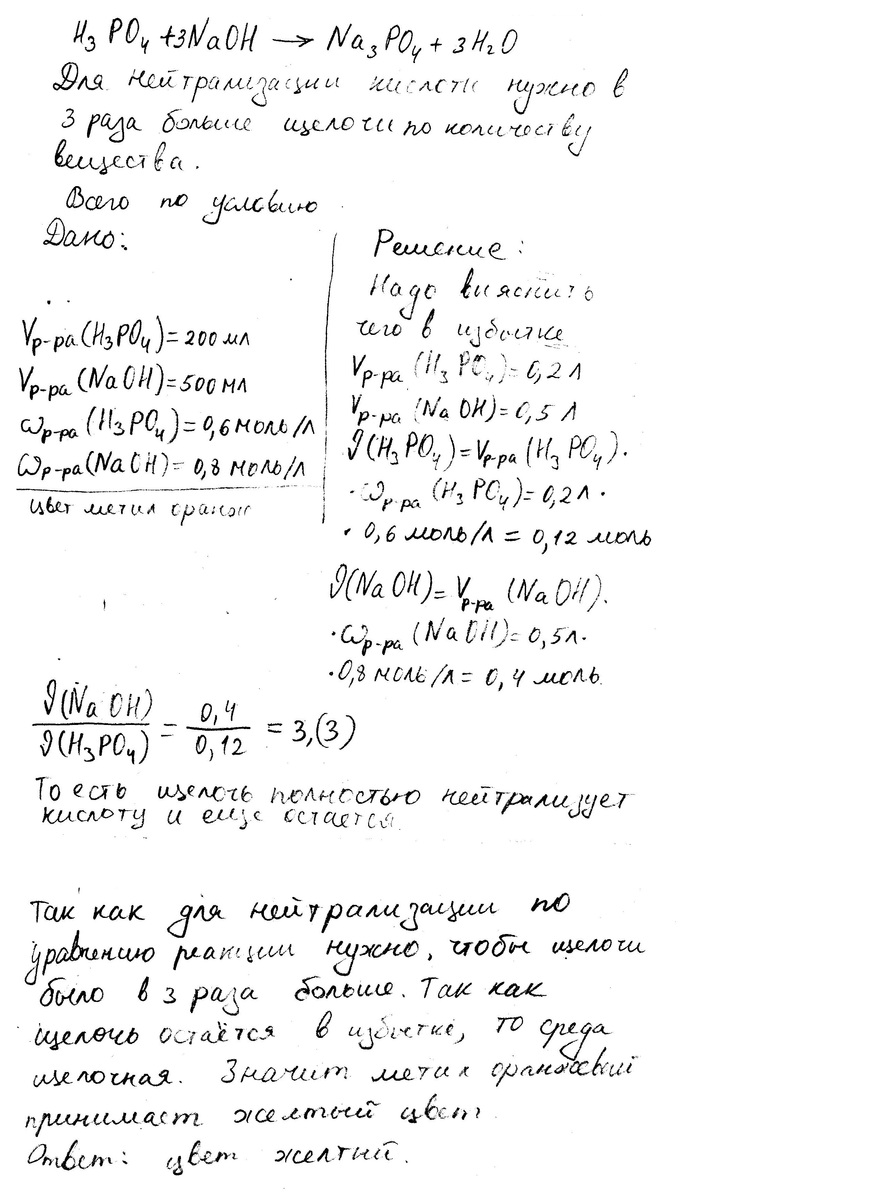 H₃PO₄ + 3NaOH → Na₃PO₄ + 3H₂O
Для нейтрализации кислоты нужно в
3 раза больше щелочи по количеству
вещества.
Всего по условию
Дано:
Vр-ра(H₃PO₄) = 200 мл
Vр-ра(NaOH) = 500 мл
ωр-ра(H₃PO₄) = 0,6 моль/л
ωр-ра(NaOH) = 0,8 моль/л
цвет метил оранж
Решение:
Надо выяснить
чего в избытке
Vр-ра(H₃PO₄) = 0,2 л
Vр-ра(NaOH) = 0,5 л
ϑ(H₃PO₄) = Vр-ра(H₃PO₄)·
·ωр-ра(H₃PO₄) = 0,2 л·
·0,6 моль/л = 0,12 моль
ϑ(NaOH) = Vр-ра(NaOH).
·ωр-ра(NaOH) = 0,5 л·
·0,8 моль/л = 0,4 моль.
ϑ(NaOH)/ϑ(H₃PO₄) = 0,4/0,12 = 3,(3)
То есть щелочь полностью нейтрализует
кислоту и еще остается.
Так как для нейтрализации по
уравнению реакции нужно, чтобы щелочи
было в 3 раза больше. Так как
щелочь остаётся в избытке, то среда
щелочная. Значит метил оранжевый
принимает желтый цвет.
Ответ: цвет желтый.